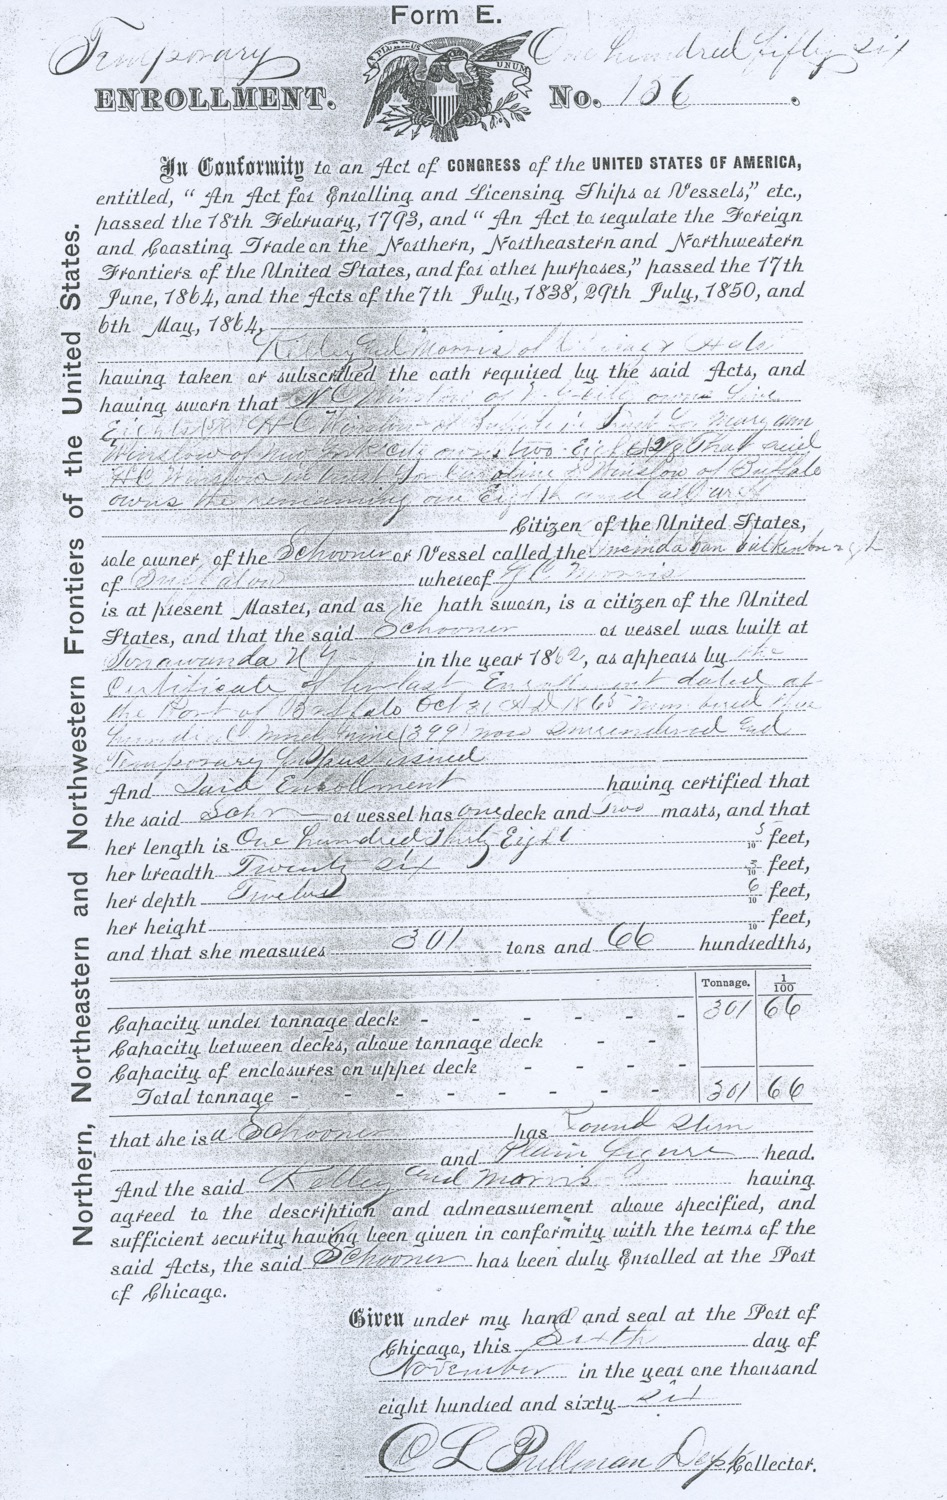 Form E.
Temporary
One hundred fifty six
E PLURIBUS UNUM
ENROLLMENT.
No. 156
In Conformity to an Act of CONGRESS of the UNITED STATES OF AMERICA,
entitled, "An Act for Enrolling and Licensing Ships or Vessels," etc.,
passed the 18th February, 1793, and "An Act to regulate the Foreign
and Coasting Trade on the Northern, Northeastern and Northwestern
Frontiers of the United States, and for other purposes," passed the 17th
June, 1864, and the Acts of the 7th July, 1838, 29th July, 1850, and
6th May, 1864,
Kelley and Morris of
having taken or subscribed the oath required by the said Acts, and
having sworn that H C Winslow of owns five
Eighths H C Winslow of in trust for Mary Ann
Winslow of New York city owns two Eighths 2/8 that said
H C Winslow in trust for Winslow of Buffalo
owns the remaining one Eighth and all are
Citizen of the United States,
sole owner, of the Schooner or Vessel called the Lucinda Van Valkenburgh
of whereof Morris
is at present Master, and as he hath sworn, is a citizen of the United
States, and that the said Schooner or vessel was built at
Tonawanda N Y in the year 1862, as appears by the
Certificate of her last Enrollment dated at
the Port of Buffalo Oct 31 AD 1865 Numbered three
hundred ninety nine (399) now surrendered and
Temporary issued
And Said Enrollment having certified that
the said Schr or vessel has one deck and two masts, and that
her length is One hundred thirty Eight 5/10 feet,
her breadth Twenty six /10 feet,
her depth Twelve 6/10 feet,
her height /10 feet,
and that she measures 301 tons and 66 hundredths,
Tonnage. 1/100
Capacity under tonnage deck - - - - - - 301 66
Capacity between decks, above tonnage deck - -
Capacity of enclosures on upper deck - - - -
Total tonnage - - - - - - - - 301 66
that she is a Schooner has Round Stern
and Plain figure head.
And the said Kelley and Morris having
agreed to the description and admeasurement above specified, and
sufficient security having been given in conformity with the terms of the
said Acts, the said Schooner has been duly Enrolled at the Port
of Chicago.
Given under my hand and seal at the Port of
Chicago, this Sixth day of
November in the year one thousand
eight hundred and sixty six
O L Pullman Dep Collector.
Northern, Northeastern and Northwestern Frontiers of the United States.